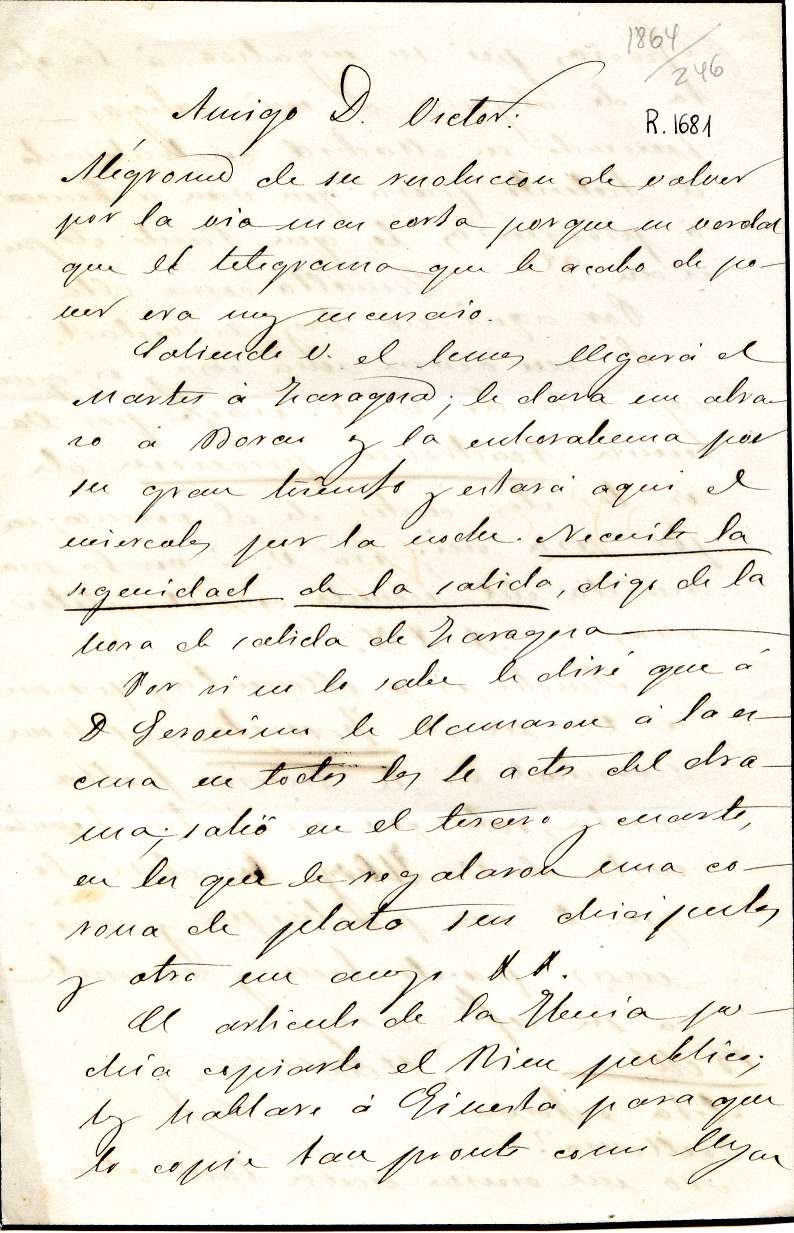 1864/246
R. 1681
Amigo D. Victor:
Alégrome de su resolucion de volver
por la via mas corta porque en verdad
que el telegrama que le acabo de po-
ner era muy necesario.
Saliendo V. el lunes llegará el
Martes á Zaragoza; le dara un abra-
zo á Borao y la enhorabuena por
su gran triunfo y estará aqui el
miercoles por la noche. Necesito la
seguridad de la salida, digo de la
hora de salida de Zaragoza
Por si no lo sabe le diré que á
D Geronimo le llamaron á la es-
cena en todos los actos del dra-
ma; salió en el tercero y cuarto,
en los que le regalaron una co-
rona de plata sus discipulos
y otra un amigo
El articulo de la Iberia po-
dria copiarlo el Bien publico;
hablare á Ginesta para que
lo copie tan pronto como llegue